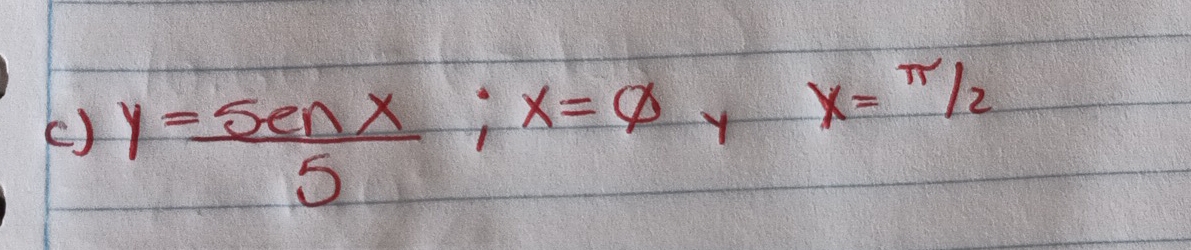 c) y = sen x / 5 ; x = ∅ y x = π/2